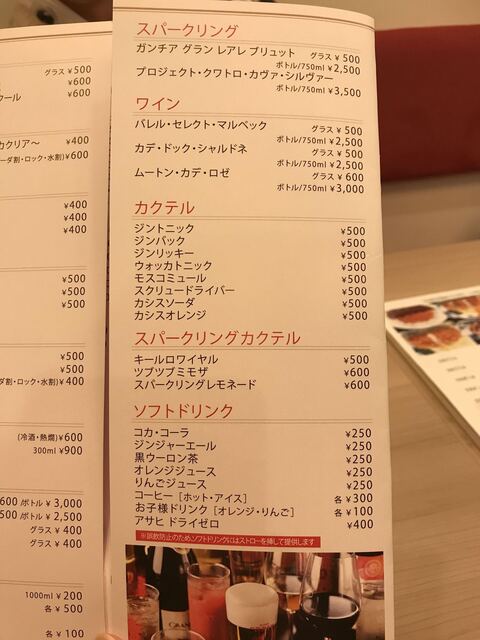 グラス ¥ 500
¥600
¥600
¥400
¥600
¥400
¥400
¥400
¥500
¥500
¥500
¥500
¥500
ダ割・ロック・水割)¥400
(冷酒・熱燗)¥600
300ml ¥900
600 /ボトル ¥ 3,000
500 /ボトル ¥ 2,500
グラス ¥ 400
グラス ¥ 400
1000ml ¥200
各 ¥ 500
各 ¥ 100
スパークリング
ガンチア グラン レアレ ブリュット グラス ¥ 500
ボトル/750ml ¥2,500
プロジェクト・クワトロ・カヴァ・シルヴァー
ボトル/750ml ¥3,500
ワイン
バレル・セレクト・マルベック グラス ¥ 500
ボトル/750ml ¥2,500
カデ・ドック・シャルドネ グラス ¥ 500
ボトル/750ml ¥2,500
ムートン・カデ・ロゼ グラス ¥ 600
ボトル/750ml ¥3,000
カクテル
ジントニック ¥500
ジンバック ¥500
ジンリッキー ¥500
ウォッカトニック ¥500
モスコミュール ¥500
スクリュードライバー ¥500
カシスソーダ ¥500
カシスオレンジ ¥500
スパークリングカクテル
キールロワイヤル ¥500
ツブツブミモザ ¥600
スパークリングレモネード ¥600
ソフトドリンク
コカ・コーラ ¥250
ジンジャーエール ¥250
黒ウーロン茶 ¥250
オレンジジュース ¥250
りんごジュース ¥250
コーヒー［ホット・アイス］ 各 ¥300
お子様ドリンク［オレンジ・りんご］ 各 ¥100
アサヒ ドライゼロ ¥400
※誤飲防止のためソフトドリンクにはストローを挿して提供します